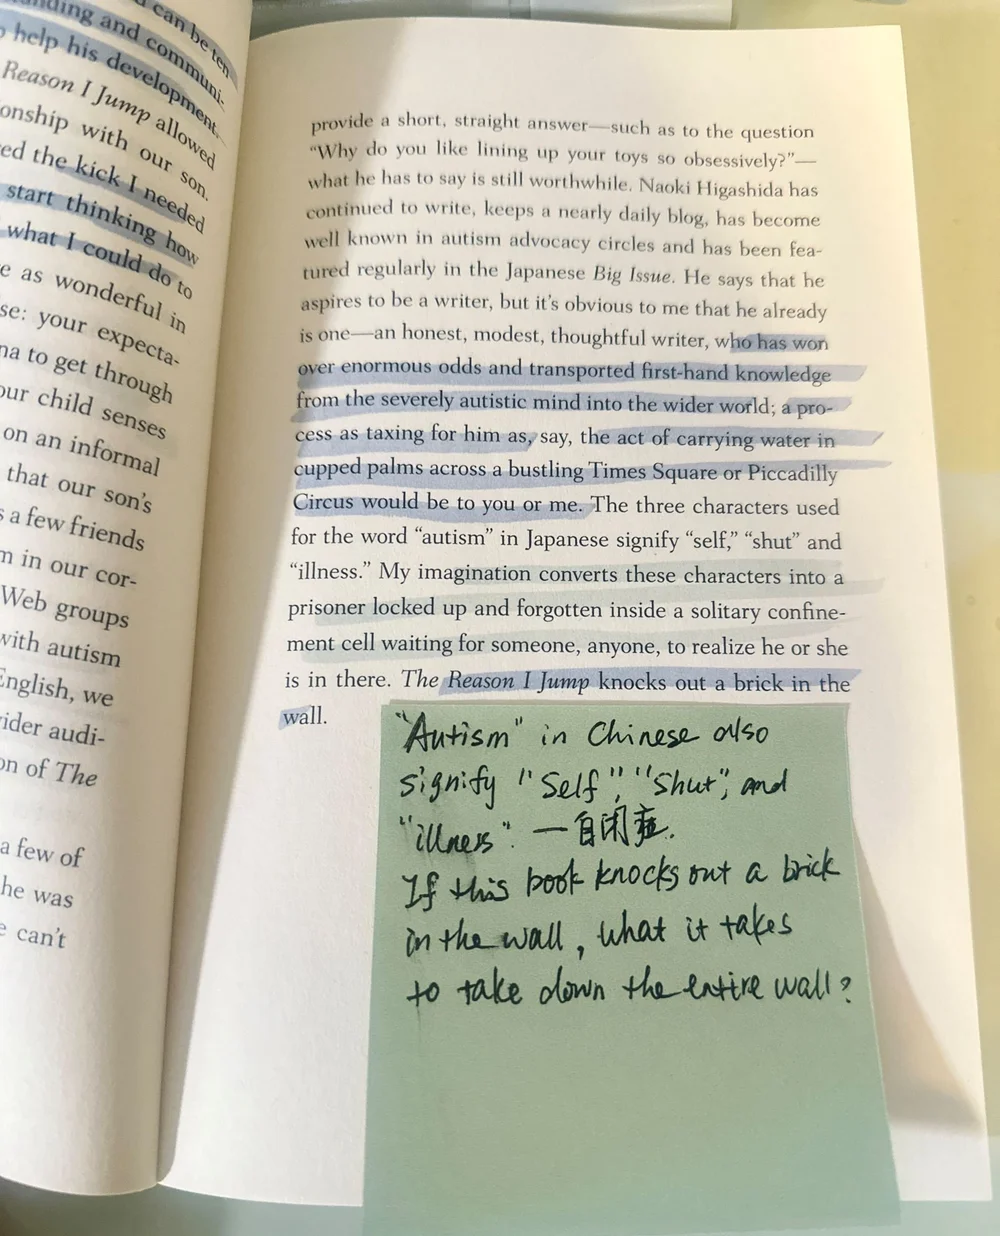 can be ten
nding and communi-
help his development.
Reason I Jump allowed
onship with our son.
ed the kick I needed
start thinking how
what I could do to
e as wonderful in
se: your expecta-
na to get through
our child senses
on an informal
that our son's
s a few friends
m in our cor-
Web groups
with autism
English, we
ider audi-
on of The
a few of
he was
e can't
provide a short, straight answer—such as to the question
"Why do you like lining up your toys so obsessively?"—
what he has to say is still worthwhile. Naoki Higashida has
continued to write, keeps a nearly daily blog, has become
well known in autism advocacy circles and has been fea-
tured regularly in the Japanese Big Issue. He says that he
aspires to be a writer, but it's obvious to me that he already
is one—an honest, modest, thoughtful writer, who has won
over enormous odds and transported first-hand knowledge
from the severely autistic mind into the wider world; a pro-
cess as taxing for him as, say, the act of carrying water in
cupped palms across a bustling Times Square or Piccadilly
Circus would be to you or me. The three characters used
for the word "autism" in Japanese signify "self," "shut" and
"illness." My imagination converts these characters into a
prisoner locked up and forgotten inside a solitary confine-
ment cell waiting for someone, anyone, to realize he or she
is in there. The Reason I Jump knocks out a brick in the
wall.
"Autism" in Chinese also
signify "Self", "Shut", and
"illness". — 自闭症.
If this book knocks out a brick
in the wall, what it takes
to take down the entire wall?